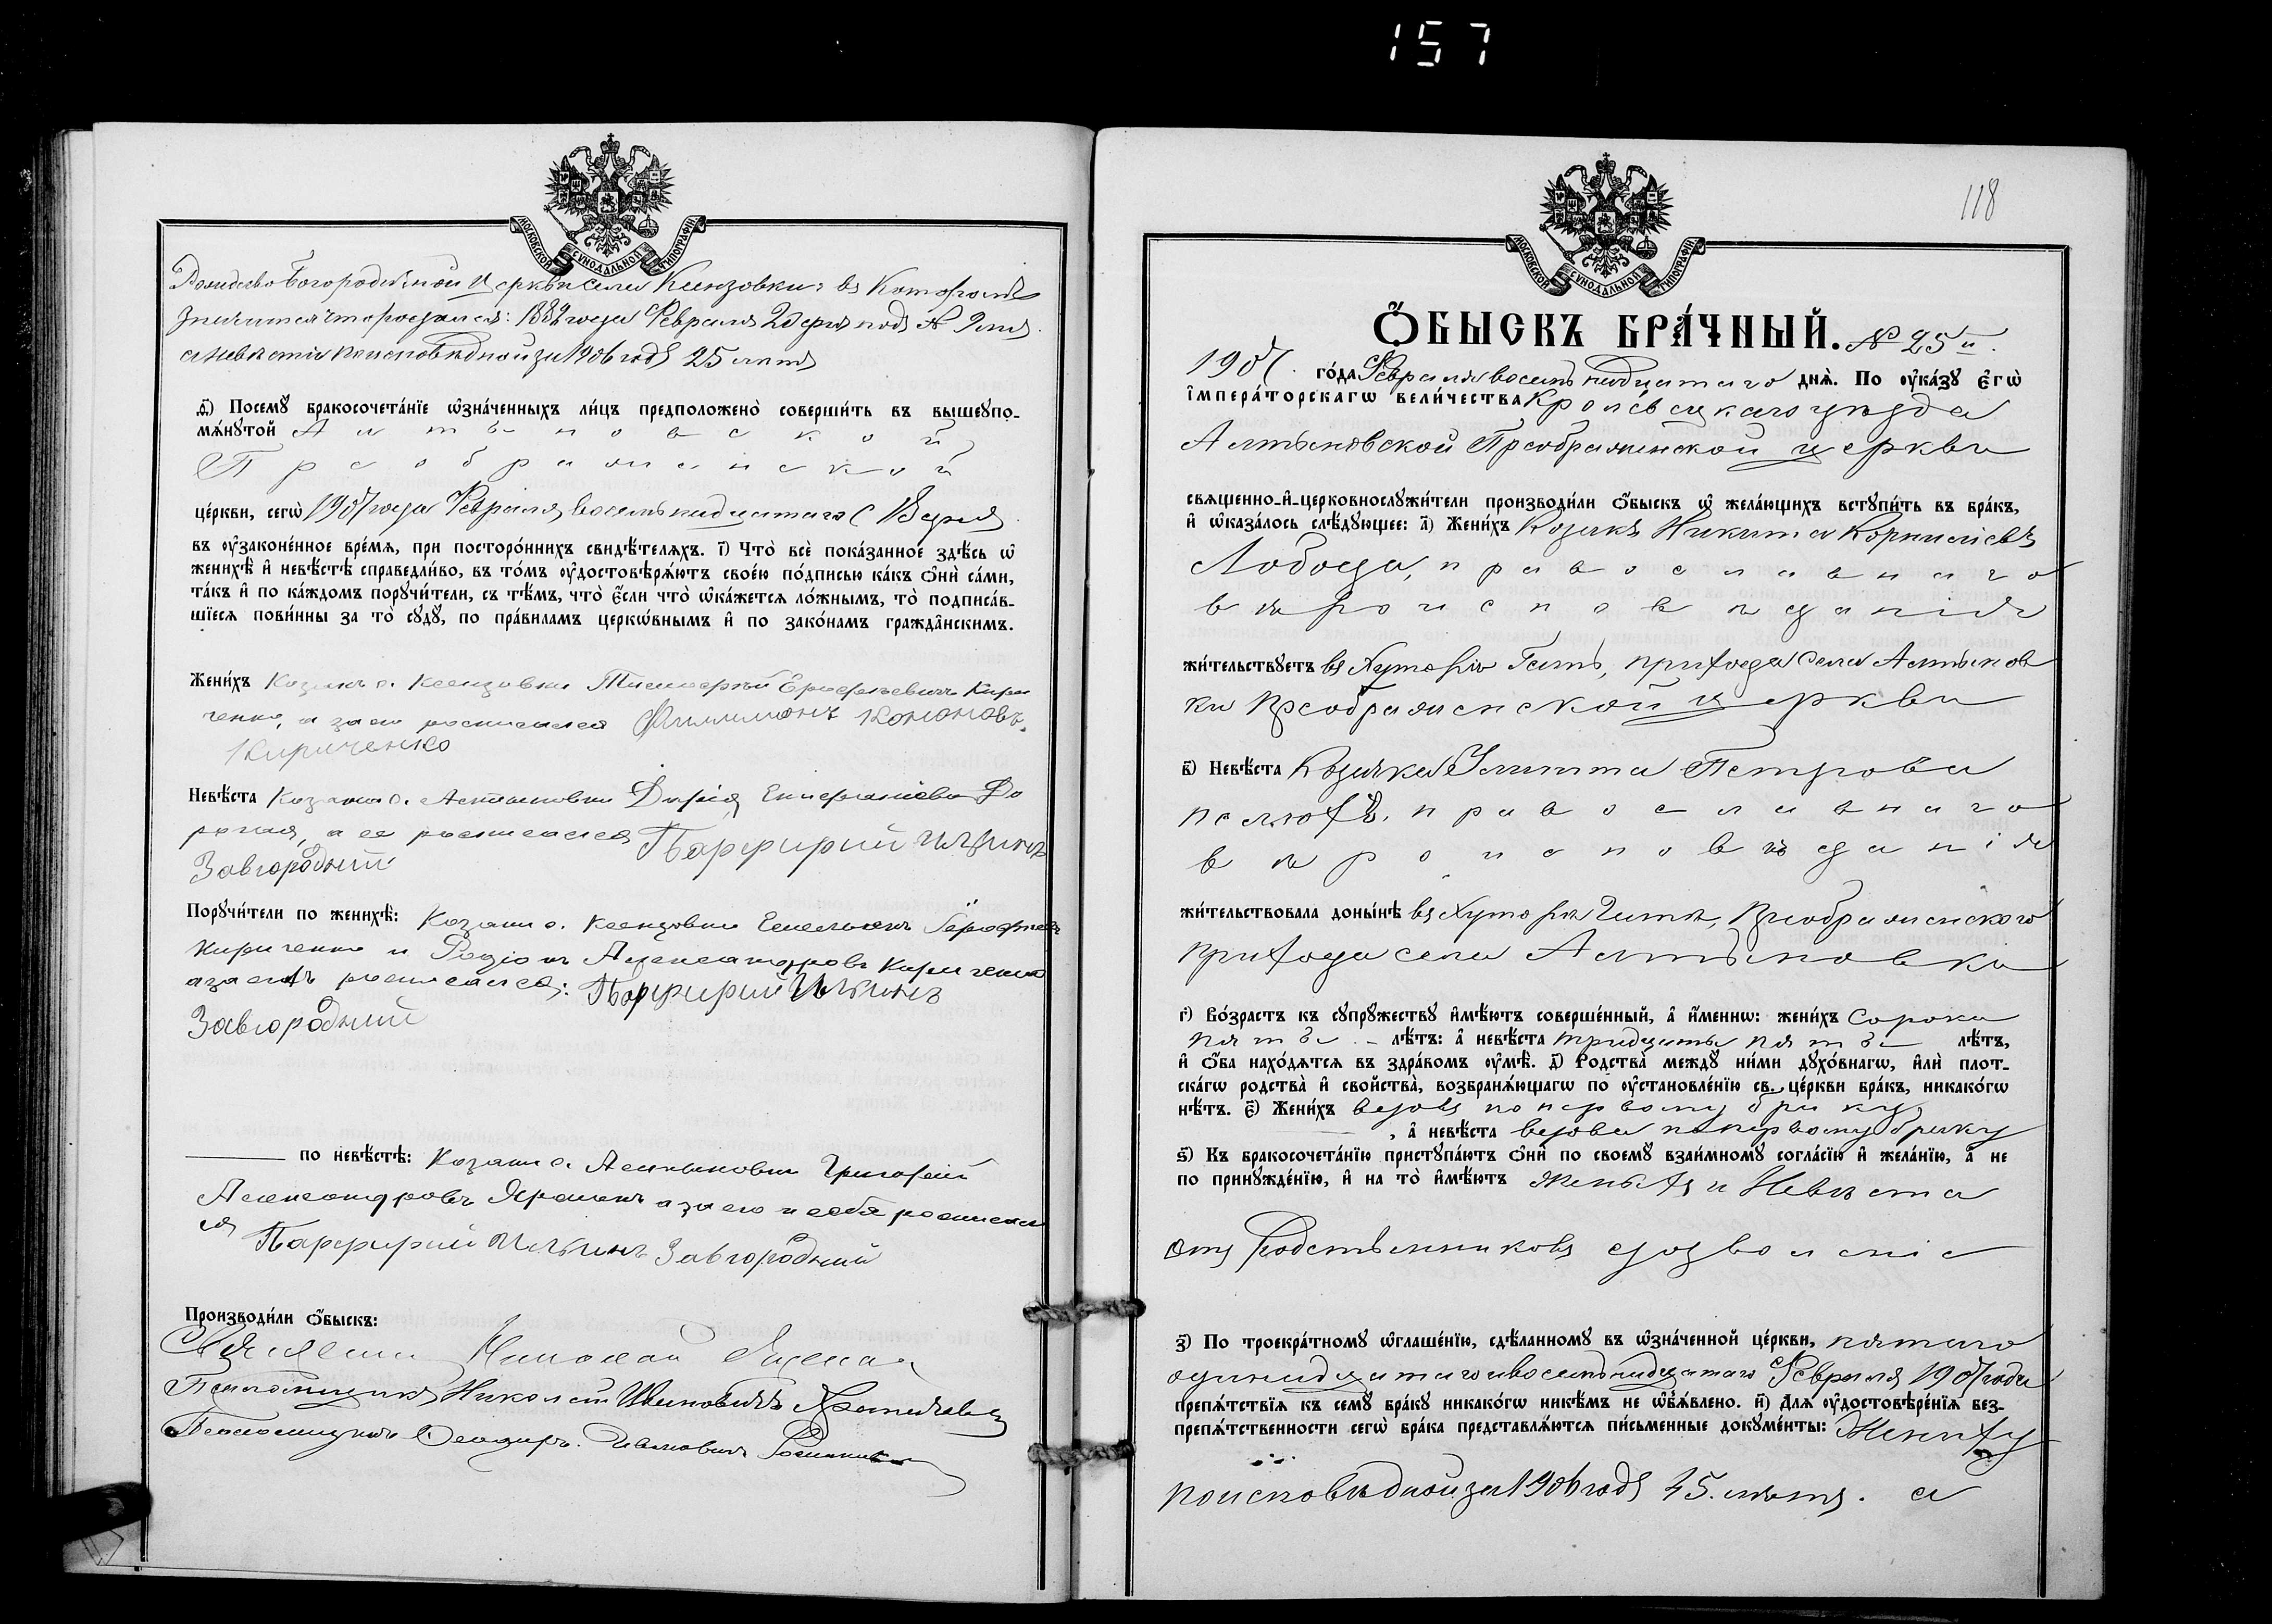 157
МОСКОВСКОЙ СѴНОДАЛЬНОЙ ТИПОГРАФІИ
Рождество Богородичной Церкви села Ксензовки: въ которомъ
значится что родился: 1882 года Февраля 2 дня подъ №
а невѣстѣ по исповѣдной за 1906 годъ 25 лѣтъ
д҃) Посемꙋ̀ бракосочета́нїе ѡ҆зна́ченныхъ ли́цъ предположено̀ соверши́ть въ вышеꙋпо-
мѧ́нꙋтой Алтыновской
Преображенской
це́ркви, сегѡ̀ 1907 года Февраля восемнадцатаго (18 дня
въ ᲂу҆зако́нное вре́мѧ, при посторо́ннихъ свидѣ́телѧхъ. і҃) Что̀ всѐ пока́занное здѣ́сь ѡ҆
женихѣ̀ и҆ невѣ́стѣ справедли́во, въ то́мъ ᲂу҆достовѣрѧ́ютъ свое́ю по́дписью ка́къ ѻ҆нѝ са́ми,
та́къ и҆ по ка́ждомъ порꙋчи́тели, съ тѣ́мъ, что̀ є҆́сли что̀ ѡ҆ка́жетсѧ ло́жнымъ, то̀ подписа́в-
шїесѧ пови́нны за то̀ сꙋдꙋ̀, по пра́виламъ церко́внымъ и҆ по зако́намъ гражда̑нскимъ.
Жени́хъ Козакъ с. Ксензовки Тимофей Ерофѣевичъ Кири
ченко, а за его росписался Филимонъ Кононовъ
Кириченко
Невѣ́ста Козачка с. Алтыновки Дарія Епифаніева До
роная, а за ее росписался Парфирий Ильинъ
Завгородний
Порꙋчи́тели по женихѣ̀: Козаки с. Ксензовки Емельянъ Ерофѣевъ
Кириченко и Родіонъ Александровъ Кириченко
а за нихъ росписался: Парфирий Ильинъ
Завгородний
по невѣ́стѣ: Козаки с. Алтыновки Григорій
Александровъ Яроменъ а за его и себя росписал
ся Парфирий Ильинъ Завгородний
Производи́ли ѻ҆́быскъ:
Священникъ Николай
Псаломщикъ Николай Ивановичъ
Псаломщикъ Ивановичъ
118
МОСКОВСКОЙ СѴНОДАЛЬНОЙ ТИПОГРАФІИ
Ѻ҆́БЫСКЪ БРА́ЧНЫЙ. № 25й.
1907. го́да Февраля восемнадцатаго днѧ̀. По ᲂу҆ка́зꙋ є҆гѡ̀
і҆мпера́торскагѡ вели́чества Кролевецкаго уѣзда
Алтыновской Преображенской церкви
свѧще́нно-и҆-церковнослꙋжи́тели производи́ли ѻ҆́быскъ ѡ҆ жела́ющихъ встꙋпи́ть въ бра́къ,
и҆ ѡ҆каза́лось слѣ́дꙋющее: а҃) Жени́хъ Козакъ Никита Корниліевъ
Лобода, православнаго
вѣроисповѣданія
жи́тельствꙋетъ въ Хуторѣ Гать, прихода села Алтынов
ки Преображенской церкви
в҃) Невѣ́ста Козачка Улитта Петрова
Пелюхъ, православнаго
вѣроисповѣданія
жи́тельствовала доны́нѣ въ Хуторѣ Гати, Преображенскаго
прихода села Алтыновки
г҃) Во́зрастъ къ сꙋпрꙋ́жествꙋ и҆мѣ́ютъ соверше́нный, а҆ и҆́меннѡ: жени́хъ Сорока
пяти — лѣ́тъ: а҆ невѣ́ста тридцати пяти — лѣ́тъ,
и҆ ѻ҆́ба нахо́дѧтсѧ въ здра́вомъ ᲂу҆мѣ̀. д҃) Родства̀ междꙋ̀ ни́ми дꙋхо́внагѡ, и҆лѝ плот-
ска́гѡ родства̀ и҆ сво́йства̀, возбранѧ́ющагѡ по ᲂу҆становле́нїю св. це́ркви бра́къ, никако́гѡ
нѣ́тъ. є҃) Жени́хъ вдовъ по первому браку,
, а҆ невѣ́ста вдова по первому браку
ѕ҃) Къ бракосочета́нїю пристꙋпа́ютъ ѻ҆нѝ по своемꙋ̀ взаи́мномꙋ согла́сїю и҆ жела́нїю, а҆ не
по принꙋжде́нїю, и҆ на то̀ и҆мѣ́ютъ Женихъ и Невѣста
отъ родственниковъ дозволеніе
з҃) По троекра́тномꙋ ѡ҆глаше́нїю, сдѣ́ланномꙋ въ ѡ҆зна́ченной це́ркви, пятаго
одинадцатаго и восемнадцатаго Февраля 1907 года
препѧ́тствїѧ къ семꙋ̀ бра́кꙋ никако́гѡ никѣ́мъ не ѡ҆б̾ѧ́влено. и҃) Длѧ̀ ᲂу҆достовѣре́нїѧ без-
препѧ́тственности сегѡ̀ бра́ка представлѧ́ютсѧ пи́сьменные докꙋме́нты: Жениху
по исповѣдной за 1906 годъ 45. лѣтъ. а